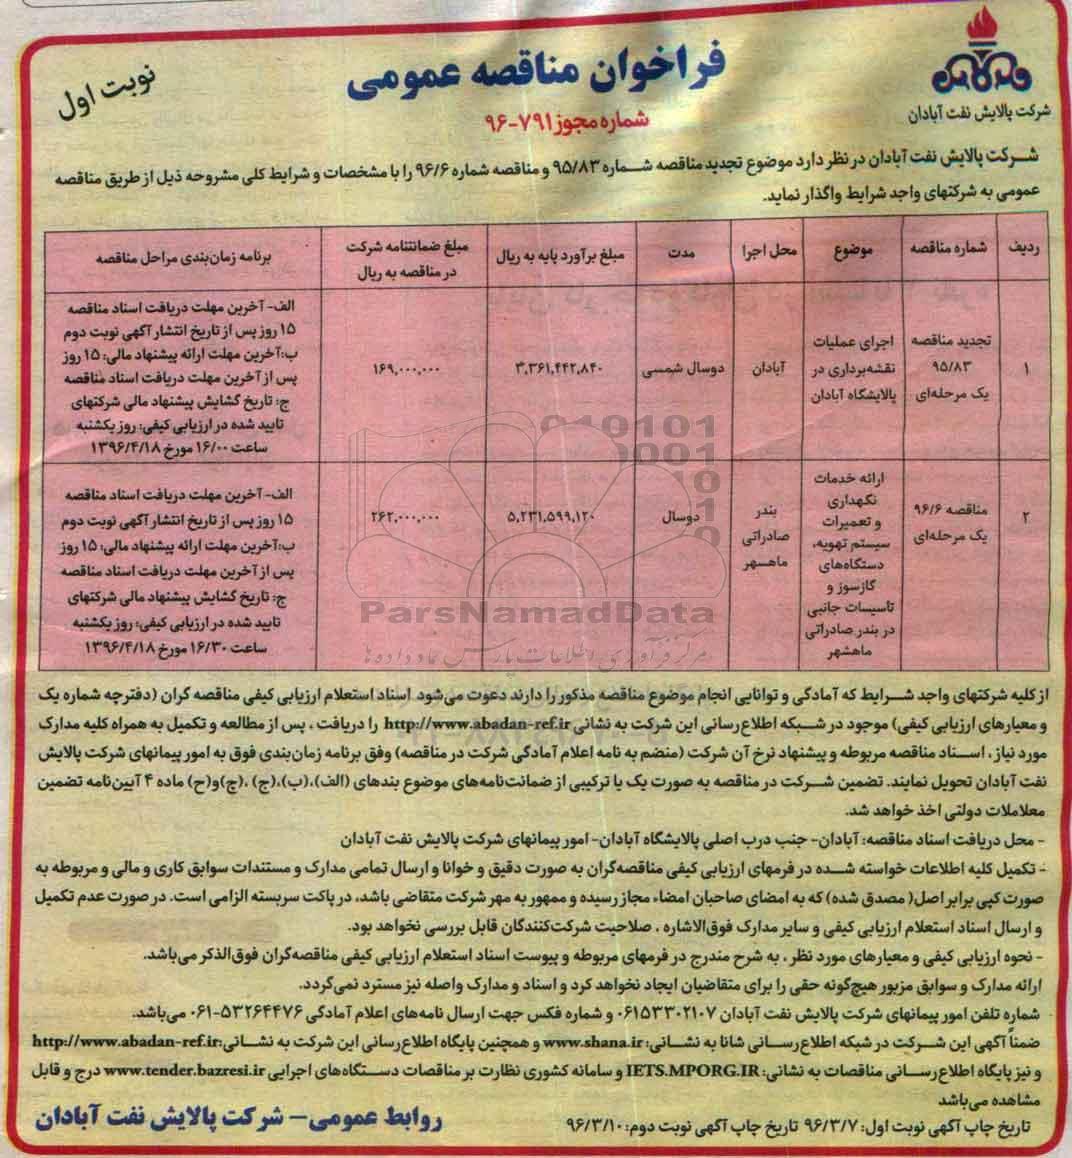 شرکت پالایش نفت آبادان
نوبت اول
فراخوان مناقصه عمومی
شماره مجوز ۷۹۱-۹۶
شـرکت پالایش نفت آبادان در نظر دارد موضوع تجدید مناقصه شـماره ۹۵/۸۳ و مناقصه شماره ۹۶/۶ را با مشخصات و شرایط کلی مشروحه ذیل از طریق مناقصه
عمومی به شرکتهای واجد شرایط واگذار نماید.
ردیف
شماره مناقصه
موضوع
محل اجرا
مدت
مبلغ برآورد پایه به ریال
مبلغ ضمانتنامه شرکت
در مناقصه به ریال
برنامه زمان‌بندی مراحل مناقصه
۱
تجدید مناقصه
۹۵/۸۳
یک مرحله‌ای
اجرای عملیات
نقشه‌برداری در
پالایشگاه آبادان
آبادان
دوسال شمسی
۳,۳۶۱,۴۴۲,۸۴۰
۱۶۹,۰۰۰,۰۰۰
الف- آخرین مهلت دریافت اسناد مناقصه
۱۵ روز پس از تاریخ انتشار آگهی نوبت دوم
ب:آخرین مهلت ارائه پیشنهاد مالی: ۱۵ روز
پس از آخرین مهلت دریافت اسناد مناقصه
ج: تاریخ گشایش پیشنهاد مالی شرکتهای
تایید شده در ارزیابی کیفی: روز یکشنبه
ساعت ۱۶/۰۰ مورخ ۱۳۹۶/۴/۱۸
۲
مناقصه ۹۶/۶
یک مرحله‌ای
ارائه خدمات
نگهداری
و تعمیرات
سیستم تهویه،
دستگاه‌های
گازسوز و
تاسیسات جانبی
در بندر صادراتی
ماهشهر
بندر
صادراتی
ماهسهر
دوسال
۵,۲۳۱,۵۹۹,۱۲۰
۲۶۲,۰۰۰,۰۰۰
الف- آخرین مهلت دریافت اسناد مناقصه
۱۵ روز پس از تاریخ انتشار آگهی نوبت دوم
ب:آخرین مهلت ارائه پیشنهاد مالی: ۱۵ روز
پس از آخرین مهلت دریافت اسناد مناقصه
ج: تاریخ گشایش پیشنهاد مالی شرکتهای
تایید شده در ارزیابی کیفی: روز یکشنبه
ساعت ۱۶/۳۰ مورخ ۱۳۹۶/۴/۱۸
ParsNamadData
مرکز فرآوری اطلاعات پارس نماد داده ها
از کلیه شرکتهای واجد شـرایط که آمادگی و توانایی انجام موضوع مناقصه مذکور را دارند دعوت می‌شود اسناد استعلام ارزیابی کیفی مناقصه گران (دفترچه شماره یک
و معیارهای ارزیابی کیفی) موجود در شـبکه اطلاع‌رسانی این شرکت به نشانی http://www.abadan-ref.ir را دریافت ، پس از مطالعه و تکمیل به همراه کلیه مدارک
مورد نیاز ، اسـناد مناقصه مربوطه و پیشنهاد نرخ آن شرکت (منضم به نامه اعلام آمادگی شرکت در مناقصه) وفق برنامه زمان‌بندی فوق به امور پیمانهای شرکت پالایش
نفت آبادان تحویل نمایند. تضمین شـرکت در مناقصه به صورت یک یا ترکیبی از ضمانت‌نامه‌های موضوع بندهای (الف)،(ب)،(ج) ،(چ)و(ح) ماده ۴ آیین‌نامه تضمین
معلاملات دولتی اخذ خواهد شد.
- محل دریافت اسناد مناقصه: آبادان- جنب درب اصلی پالایشگاه آبادان- امور پیمانهای شرکت پالایش نفت آبادان
- تکمیل کلیه اطلاعات خواسته شـده در فرمهای ارزیابی کیفی مناقصه‌گران به صورت دقیق و خوانا و ارسال تمامی مدارک و مستندات سوابق کاری و مالی و مربوطه به
صورت کپی برابر اصل( مصدق شده) که به امضای صاحبان امضاء مجاز رسیده و ممهور به مهر شرکت متقاضی باشد، در پاکت سربسته الزامی است. در صورت عدم تکمیل
و ارسال اسناد استعلام ارزیابی کیفی و سایر مدارک فوق‌الاشاره ، صلاحیت شرکت‌کنندگان قابل بررسی نخواهد بود.
- نحوه ارزیابی کیفی و معیارهای مورد نظر ، به شرح مندرج در فرمهای مربوطه و پیوست اسناد استعلام ارزیابی کیفی مناقصه‌گران فوق‌الذکر می‌باشد.
ارائه مدارک و سوابق مزبور هیچ‌گونه حقی را برای متقاضیان ایجاد نخواهد کرد و اسناد و مدارک واصله نیز مسترد نمی‌گردد.
شماره تلفن امور پیمانهای شرکت پالایش نفت آبادان ۰۶۱۵۳۳۰۲۱۰۷ و شماره فکس جهت ارسال نامه‌های اعلام آمادگی ۵۳۲۶۴۴۷۶-۰۶۱ می‌باشد.
ضمناً آگهی این شـرکت در شبکه اطلاع‌رسـانی شانا به نشـانی: www.shana.ir و همچنین پایگاه اطلاع‌رسانی این شرکت به نشـانی:http://www.abadan-ref.ir
و نیز پایگاه اطلاع‌رسـانی مناقصات به نشانی: IETS.MPORG.IR و سامانه کشوری نظارت بر مناقصات دسـتگاه‌های اجرایی www.tender.bazresi.ir درج و قابل
مشاهده می‌باشد
تاریخ چاپ آگهی نوبت اول: ۹۶/۳/۷ تاریخ چاپ آگهی نوبت دوم: ۹۶/۳/۱۰
روابط عمومی- شرکت پالایش نفت آبادان